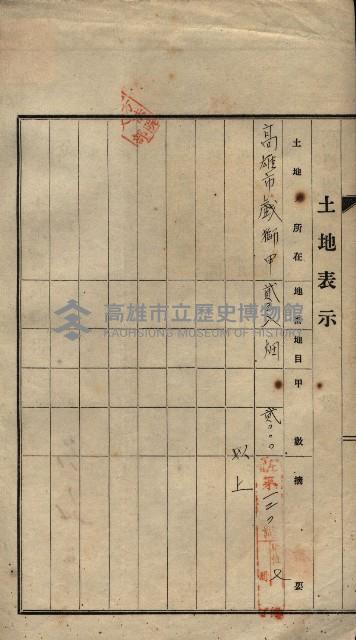 土地表示
土地ノ所在地番地目甲數摘要
高雄市戲獅甲 畑 貳〇〇〇
以上
高雄市立歷史博物館
KAOHSIUNG MUSEUM OF HISTORY